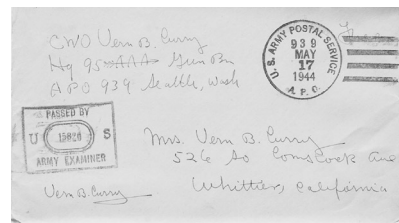 CWO Vern B. Curry
Hq 95 AAA Gun Bn
APO 939 Seattle, Wash
U.S. ARMY POSTAL SERVICE
939
MAY
17
1944
A.P.O.
PASSED BY
U 15026 S
ARMY EXAMINER
Vern B. Curry
Mrs. Vern B. Curry
526 So Comstock Ave
Whittier, California